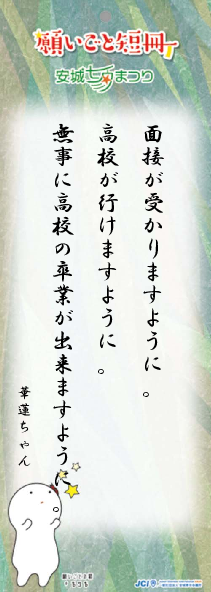 願いごと短冊
安城七夕まつり
面接が受かりますように。
高校が行けますように。
無事に高校の卒業が出来ますように
華蓮ちゃん
JCI